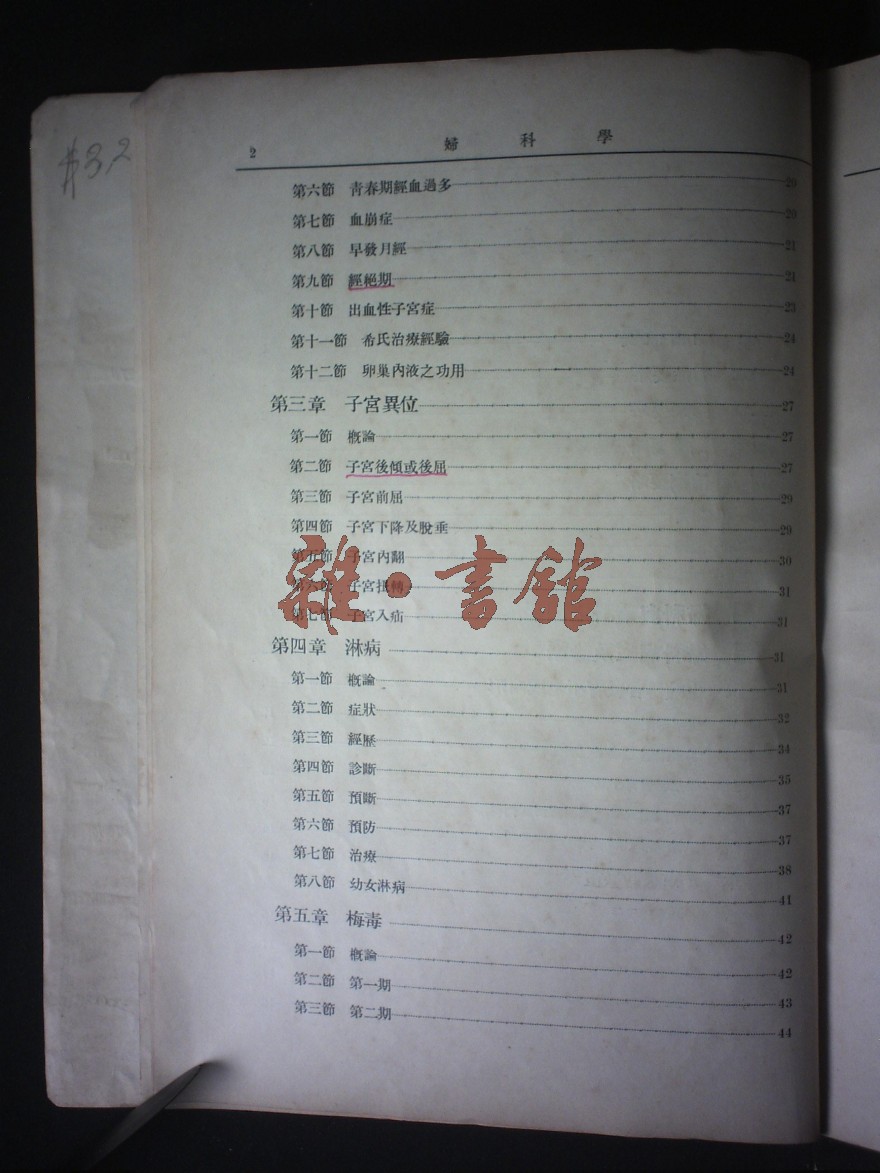 #3,2
2 婦科學
第六節 青春期經血過多 20
第七節 血崩症 20
第八節 早發月經 21
第九節 經絕期 21
第十節 出血性子宮症 23
第十一節 希氏治療經驗 24
第十二節 卵巢內液之功用 24
第三章 子宮異位 27
第一節 概論 27
第二節 子宮後傾或後屈 27
第三節 子宮前屈 29
第四節 子宮下降及脫垂 29
第五節 子宮內翻 30
第六節 子宮扭轉 31
第七節 子宮入疝 31
雜·書館
第四章 淋病 31
第一節 概論 31
第二節 症狀 32
第三節 經歷 34
第四節 診斷 35
第五節 預斷 37
第六節 預防 37
第七節 治療 38
第八節 幼女淋病 41
第五章 梅毒 42
第一節 概論 42
第二節 第一期 43
第三節 第二期 44